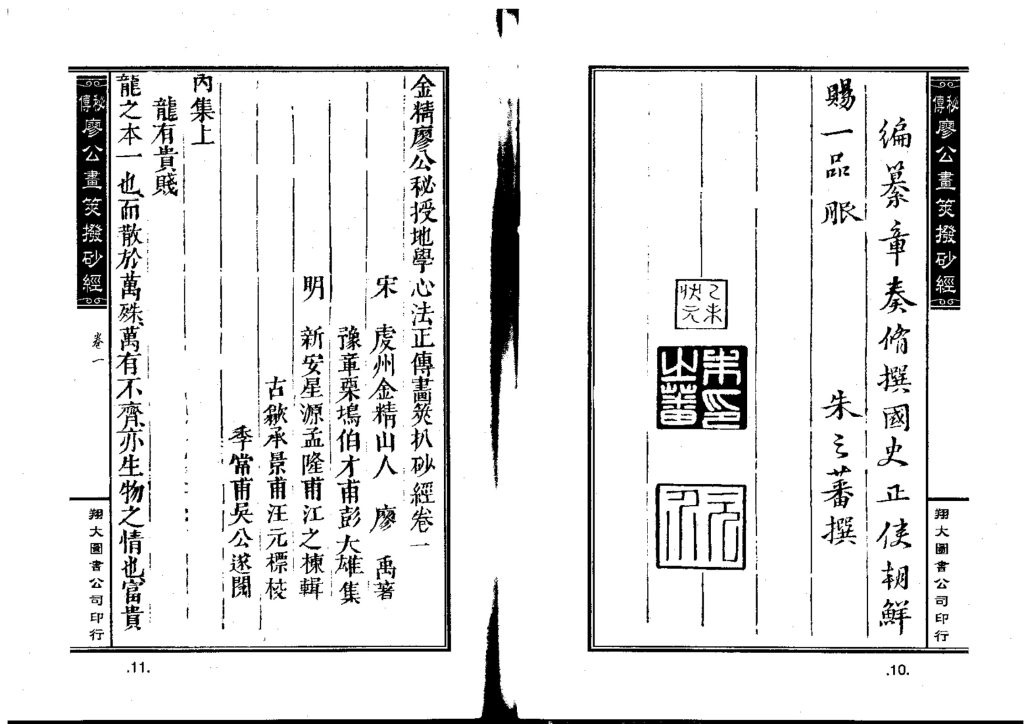 秘傳廖公畫筴撥砂經
編纂章奏脩撰國史正使朝鮮
賜一品服
朱之蕃撰
乙未
状元
朱印
之蕃
翔大圖書公司印行
.10.
金精廖公秘授地學心法正傳畫筴扒砂經卷一
宋 虔州金精山人 廖 禹著
豫章栗塢伯才甫彭大雄集
明 新安星源孟隆甫江之棟輯
古歙承景甫汪元標校
季常甫吳公遂閱
內集上
龍有貴賤
龍之本一也而散於萬殊萬有不齊亦生物之情也富貴
秘傳廖公畫筴撥砂經
卷一
翔大圖書公司印行
.11.